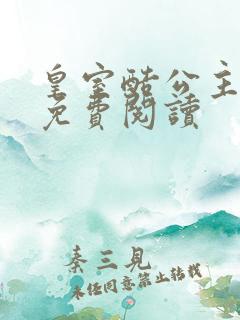 皇室酷公主
免費閱讀
秦三見
未經同意禁止轉載